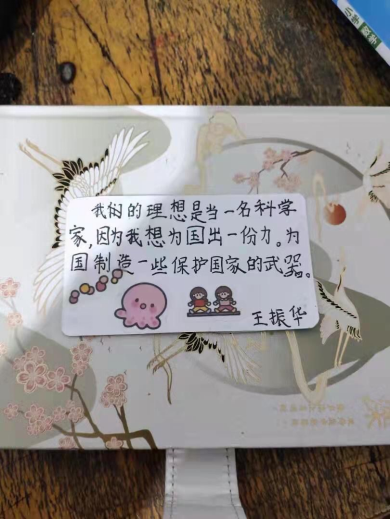 我的的理想是当一名科学
家,因为我想为国出一份力。为
国制造一些保护国家的武器。
王振华